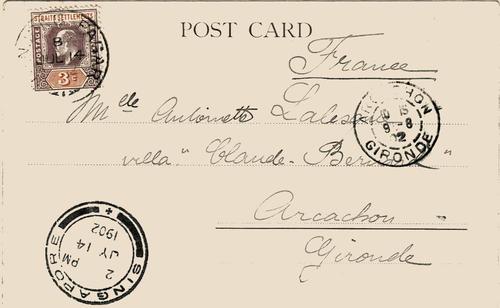 POST CARD
STRAITS SETTLEMENTS
POSTAGE
3c
JUL 14
France
Melle Antoinette
villa "Claude-
Arcachon
Gironde
ARCACHON
8-8
02
GIRONDE
SINGAPORE
2 PM
JY 14
1902